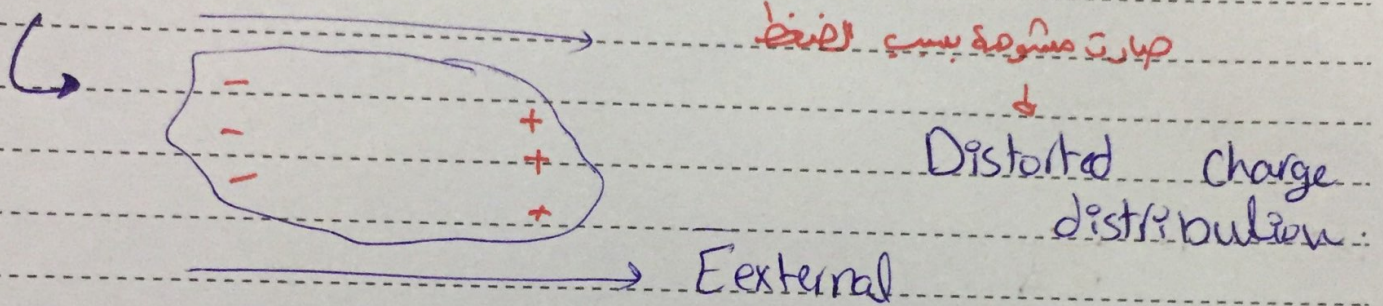 صارت مشوهة بسبب الضغط
- +
- +
- +
Distorted charge
distribution
Eexternal